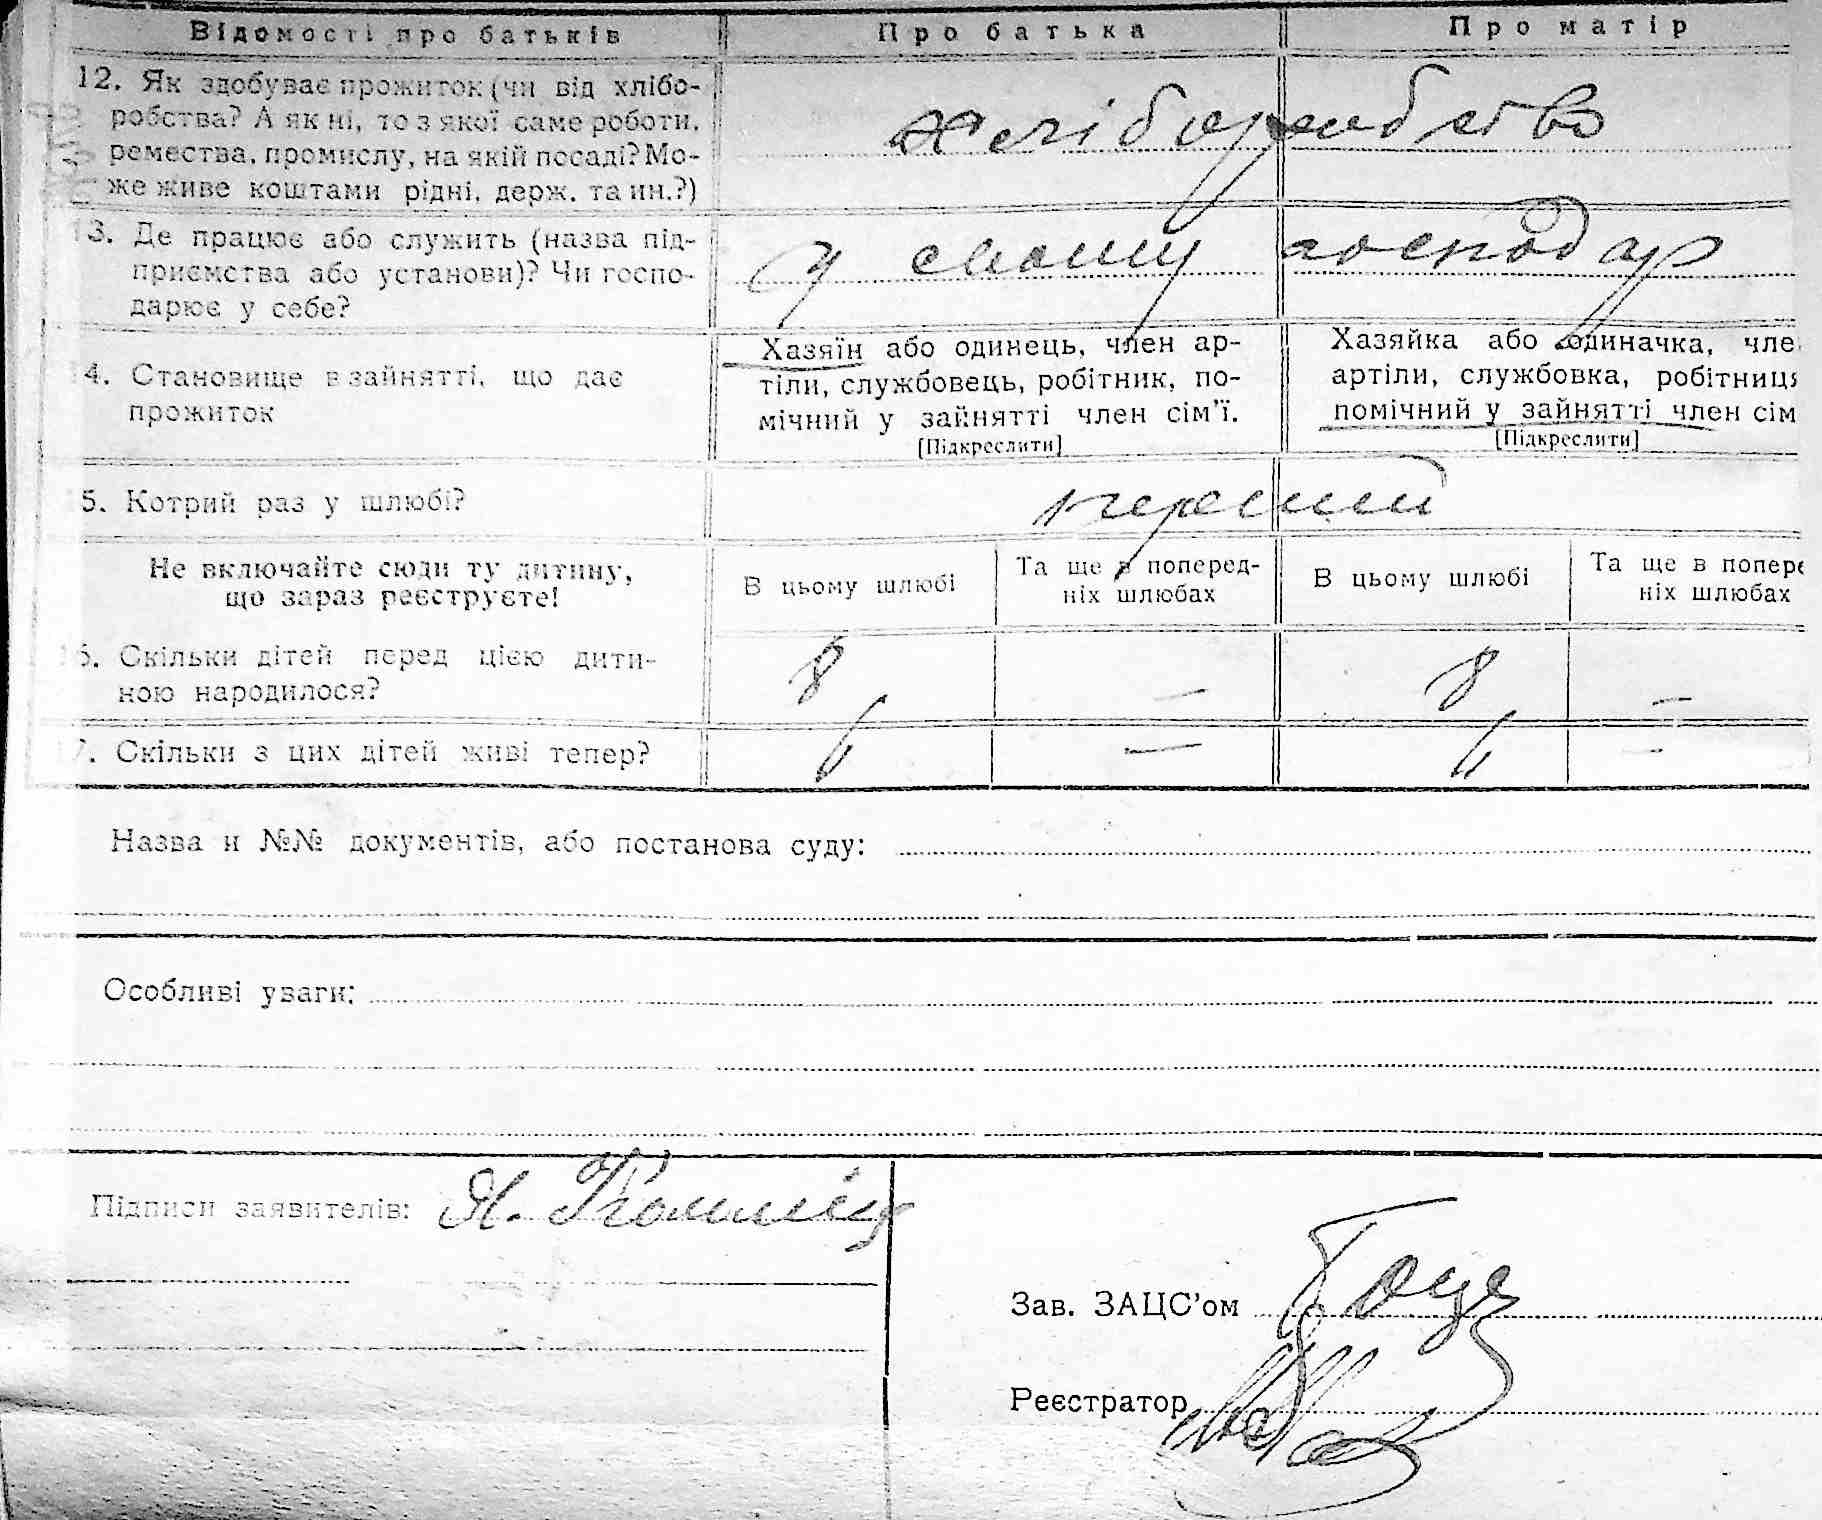 Відомості про батьків Про батька Про матір
12. Як здобуває прожиток (чи від хлібо-
робства? А як ні, то з якої саме роботи,
ремества, промислу, на якій посаді? Мо-
же живе коштами рідні, держ. та ин.?)
хліборобство
13. Де працює або служить (назва під-
приємства або установи)? Чи госпо-
дарює у себе?
у свому господар
4. Становище в зайнятті, що дає
прожиток
Хазяїн або одинець, член ар-
тіли, службовець, робітник, по-
мічний у зайнятті член сім'ї.
[Підкреслити]
Хазяйка або одиначка, чле
артіли, службовка, робітниця
помічний у зайнятті член сім
[Підкреслити]
5. Котрий раз у шлюбі?
перший
Не включайте сюди ту дитину,
що зараз реєструєте!
В цьому шлюбі
Та ще в поперед-
ніх шлюбах
В цьому шлюбі
Та ще в попере
ніх шлюбах
6. Скільки дітей перед цією дити-
ною народилося?
8 — 8 —
7. Скільки з цих дітей живі тепер?
6 — 6 —
Назва и №№ документів, або постанова суду:
Особливі уваги:
Підписи заявителів:
Зав. ЗАЦС'ом
Реєстратор